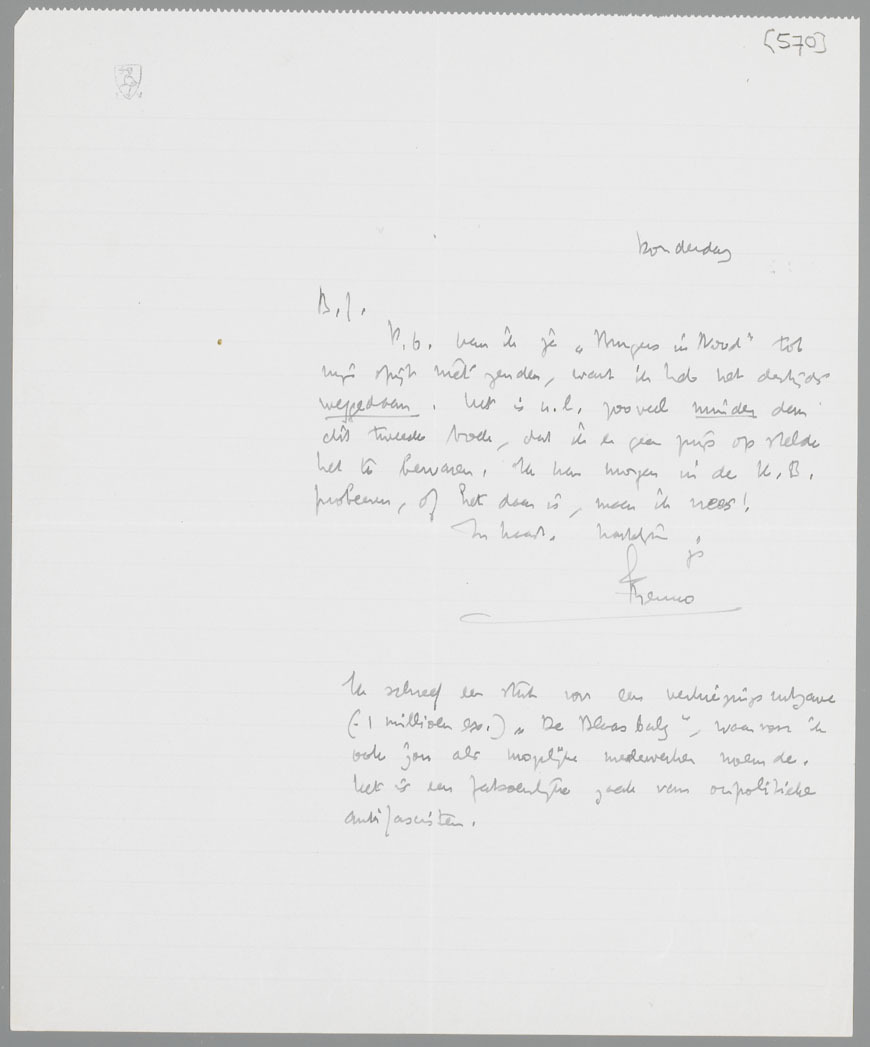 [570]
Donderdag
B. J.
V.b. kan ik je „Burgers in Nood" tot
mijn spijt niet zenden, want ik heb het destijds
weggedaan. Het is n.l. zooveel minder dan
dit tweede boek, dat ik er geen prijs op stelde
het te bewaren. Ik kan morgen in de K.B.
probeeren, of het daar is, maar ik vrees!
In haast. hartelijk
je
Menno
Ik schreef een stuk voor een verkiezingsuitgave
(- 1 millioen ex.) „De Blaasbalg", waarvoor ik
ook jou als mogelijke medewerker noemde.
Het is een fatsoenlijke zaak van onpolitieke
antifascisten.